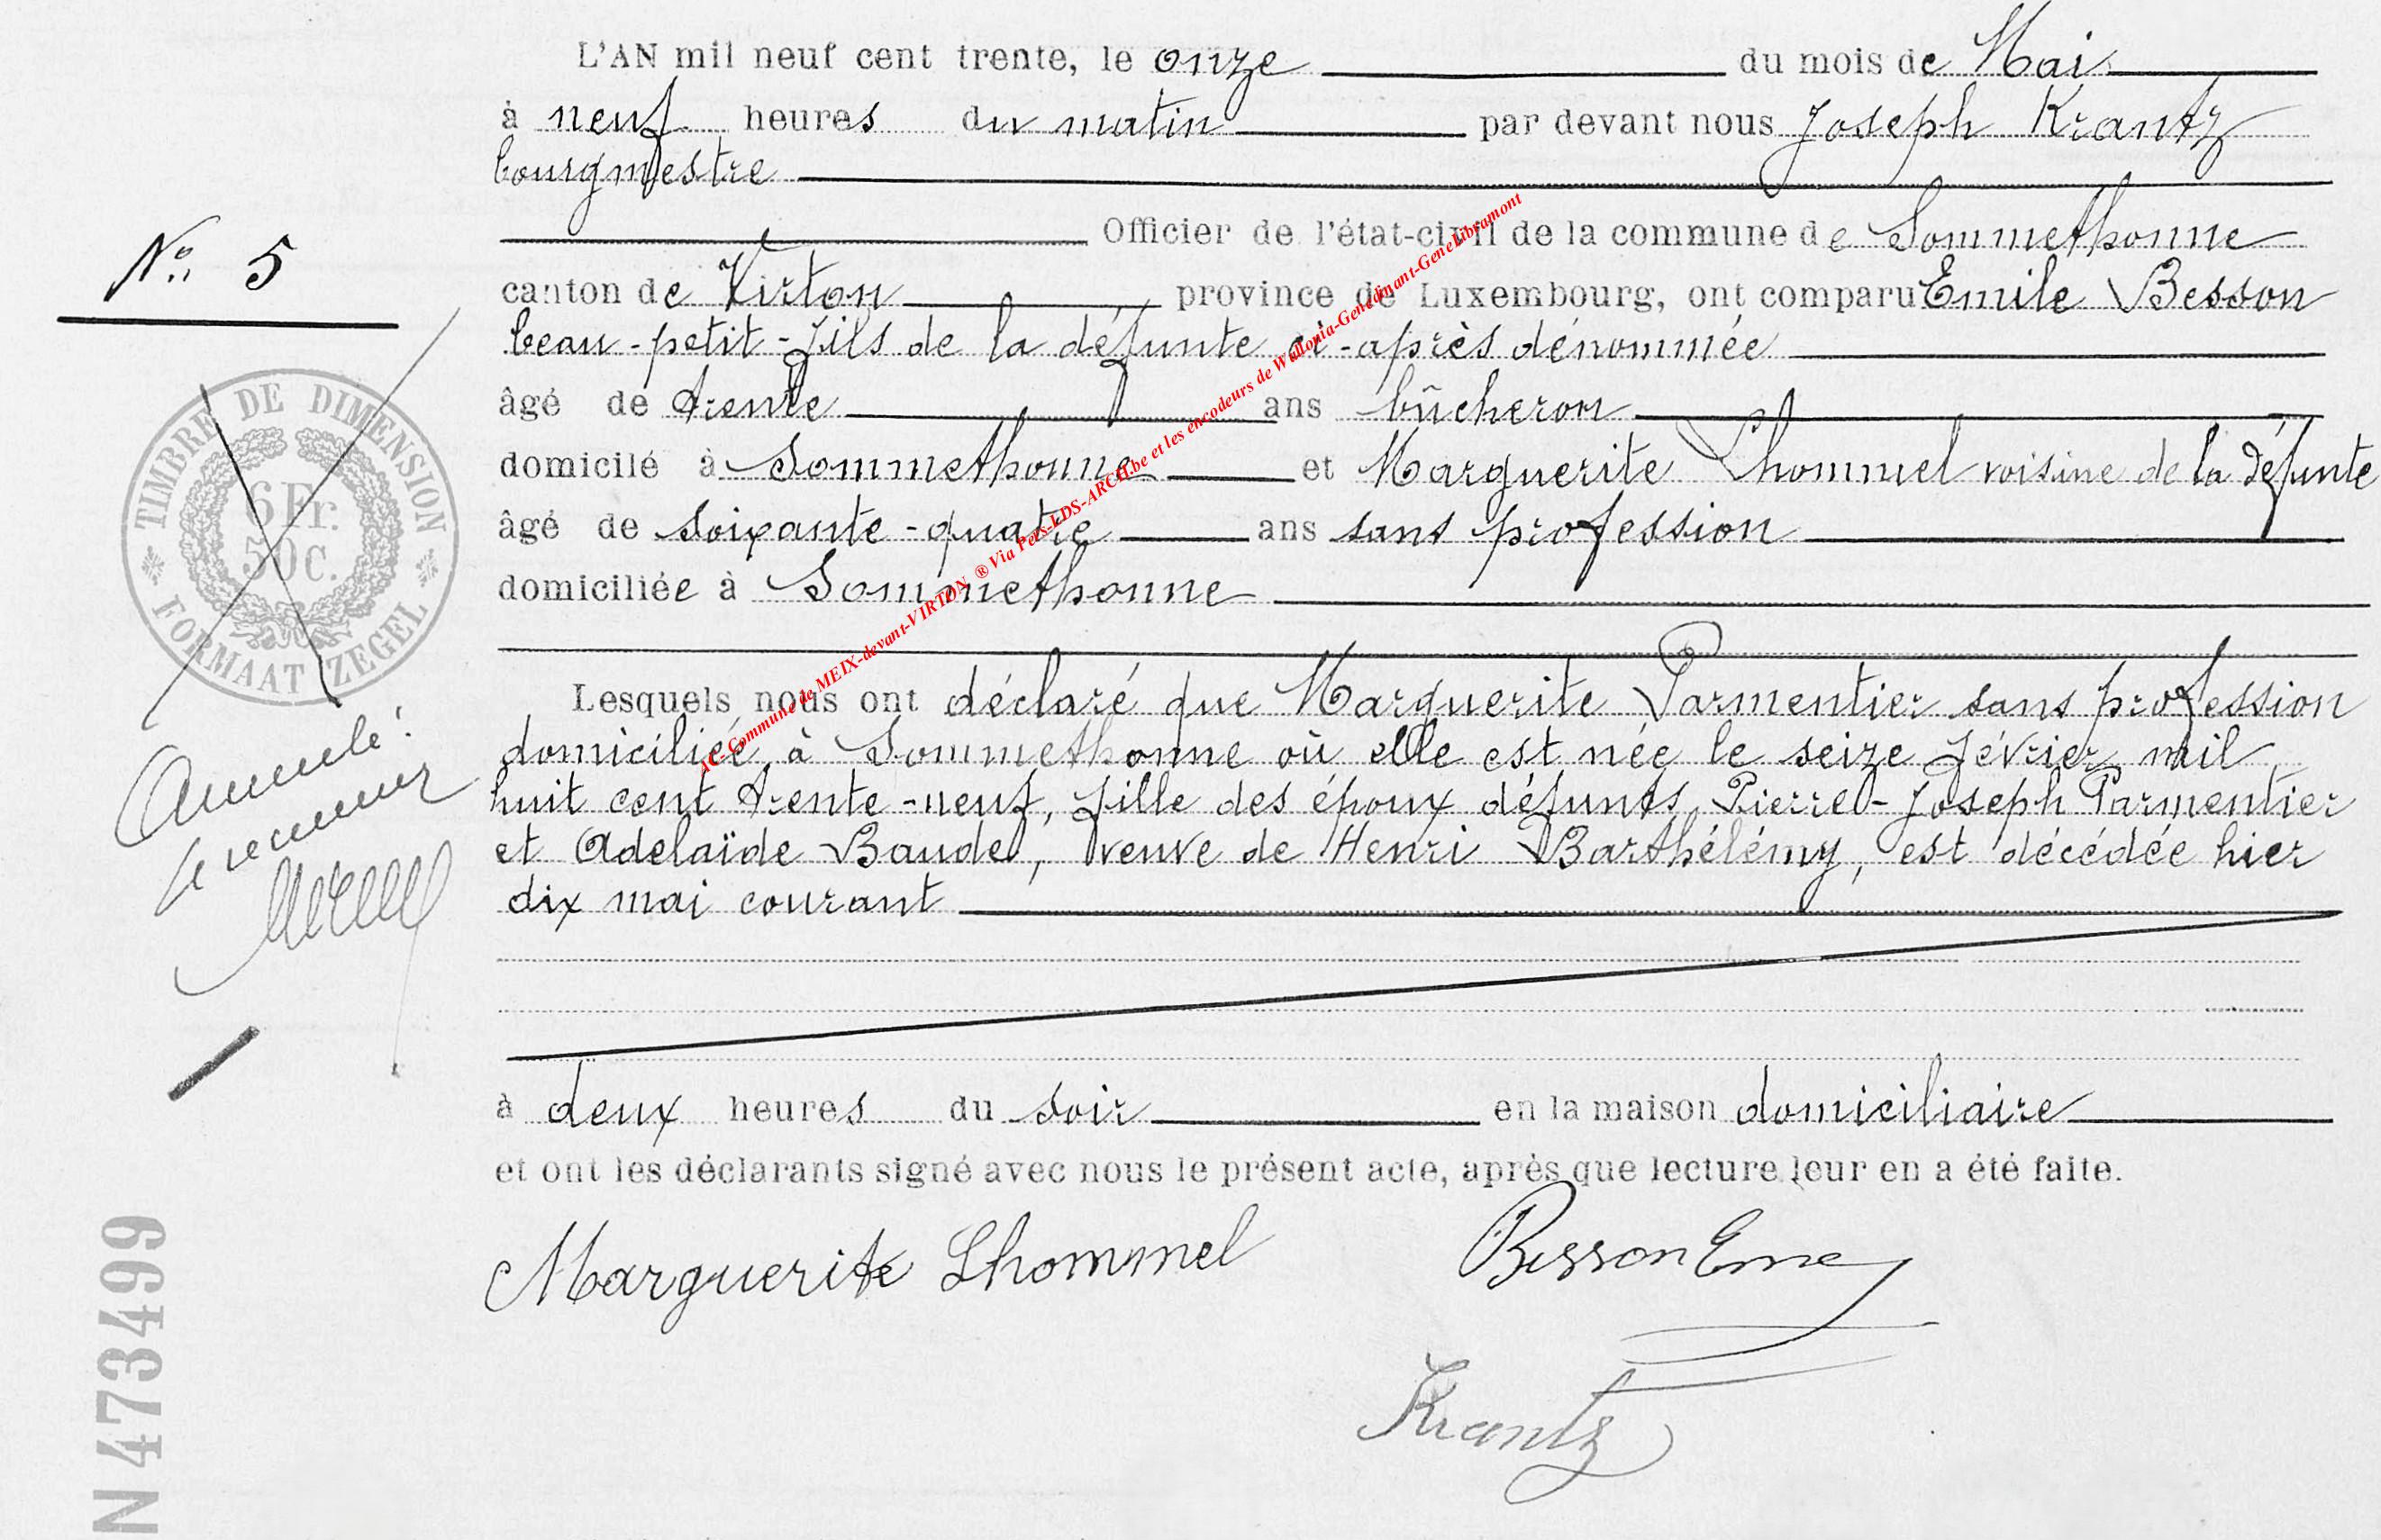 L'AN mil neuf cent trente, le onze du mois de Mai
à neuf heures du matin par devant nous Joseph Krantz
bourgmestre
Officier de l'état-civil de la commune de Sommethonne
canton de Virton province de Luxembourg, ont comparu Emile Besson
beau-petit-fils de la défunte ci-après dénommée
âgé de trente ans bûcheron
domicilé à Sommethonne et Marguerite Lhommel voisine de la défunte
âgé de soixante-quatre ans sans profession
domiciliée à Sommethonne
Lesquels nous ont déclaré que Marguerite Parmentier sans profession
domiciliée à Sommethonne où elle est née le seize février mil
huit cent trente-neuf, fille des époux défunts Pierre-Joseph Parmentier
et Adelaïde Baudet, veuve de Henri Barthélémy, est décédée hier
dix mai courant
à deux heures du soir en la maison domiciliaire
et ont les déclarants signé avec nous le présent acte, après que lecture leur en a été faite.
Marguerite Lhommel
Besson Eme
Krantz
No. 5
TIMBRE DE DIMENSION
6 Fr.
50 C.
FORMAAT ZEGEL
Annulé
le receveur
N 473499
AC-Commune de MEIX-devant-VIRTON ® Via Pers-LDS-ARCH.be et les encodeurs de Wallonia-Genedinant-GeneLibramont